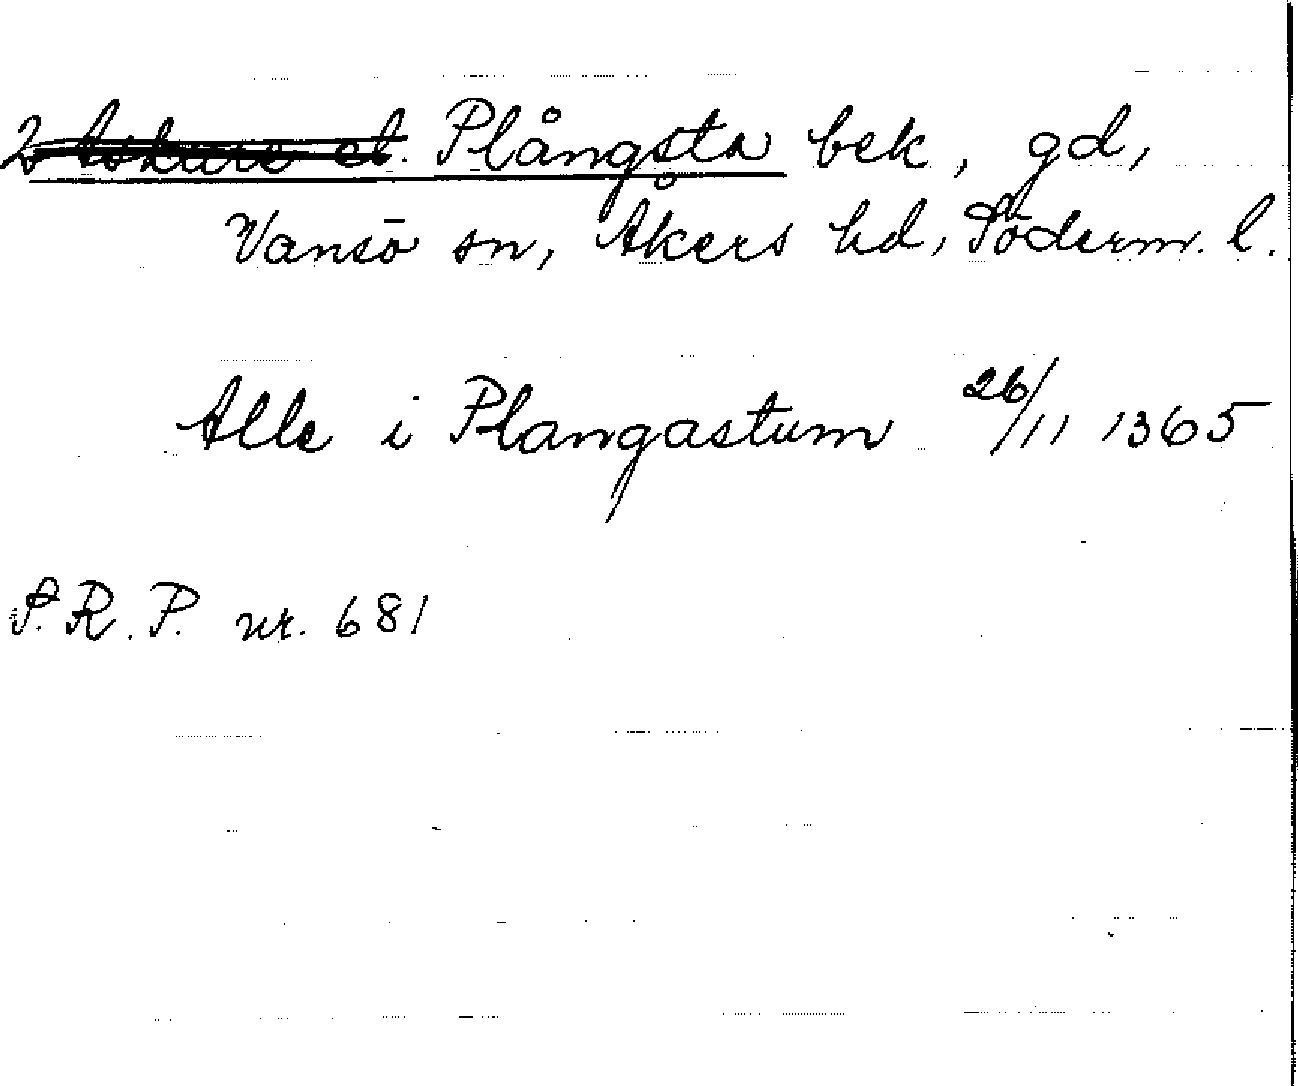 Plångsta bek, gd,
Vansö sn, Åkers hd, Söderm. l.
Alle i Plangastum 26/11 1365
S.R.P. nr. 681